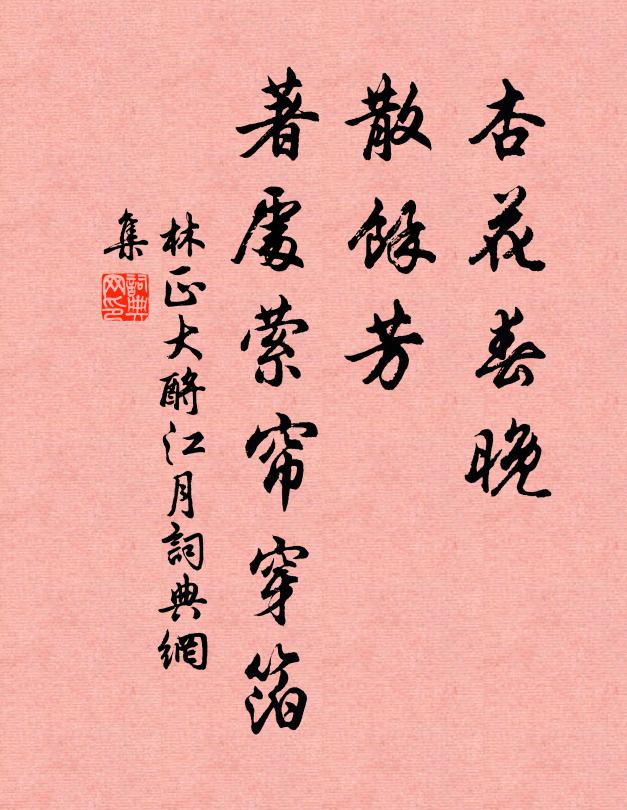 杏花春晚
散餘芳
著處萦帘穿箔
林正大酹江月詞典網
集
詞典
网印